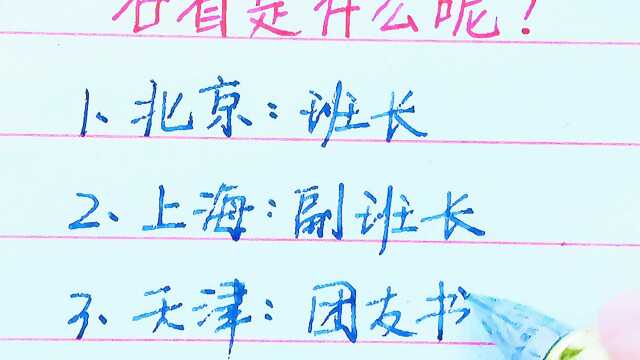 是什么呢！
1、北京：班长
2、上海：副班长
3、天津：团支书